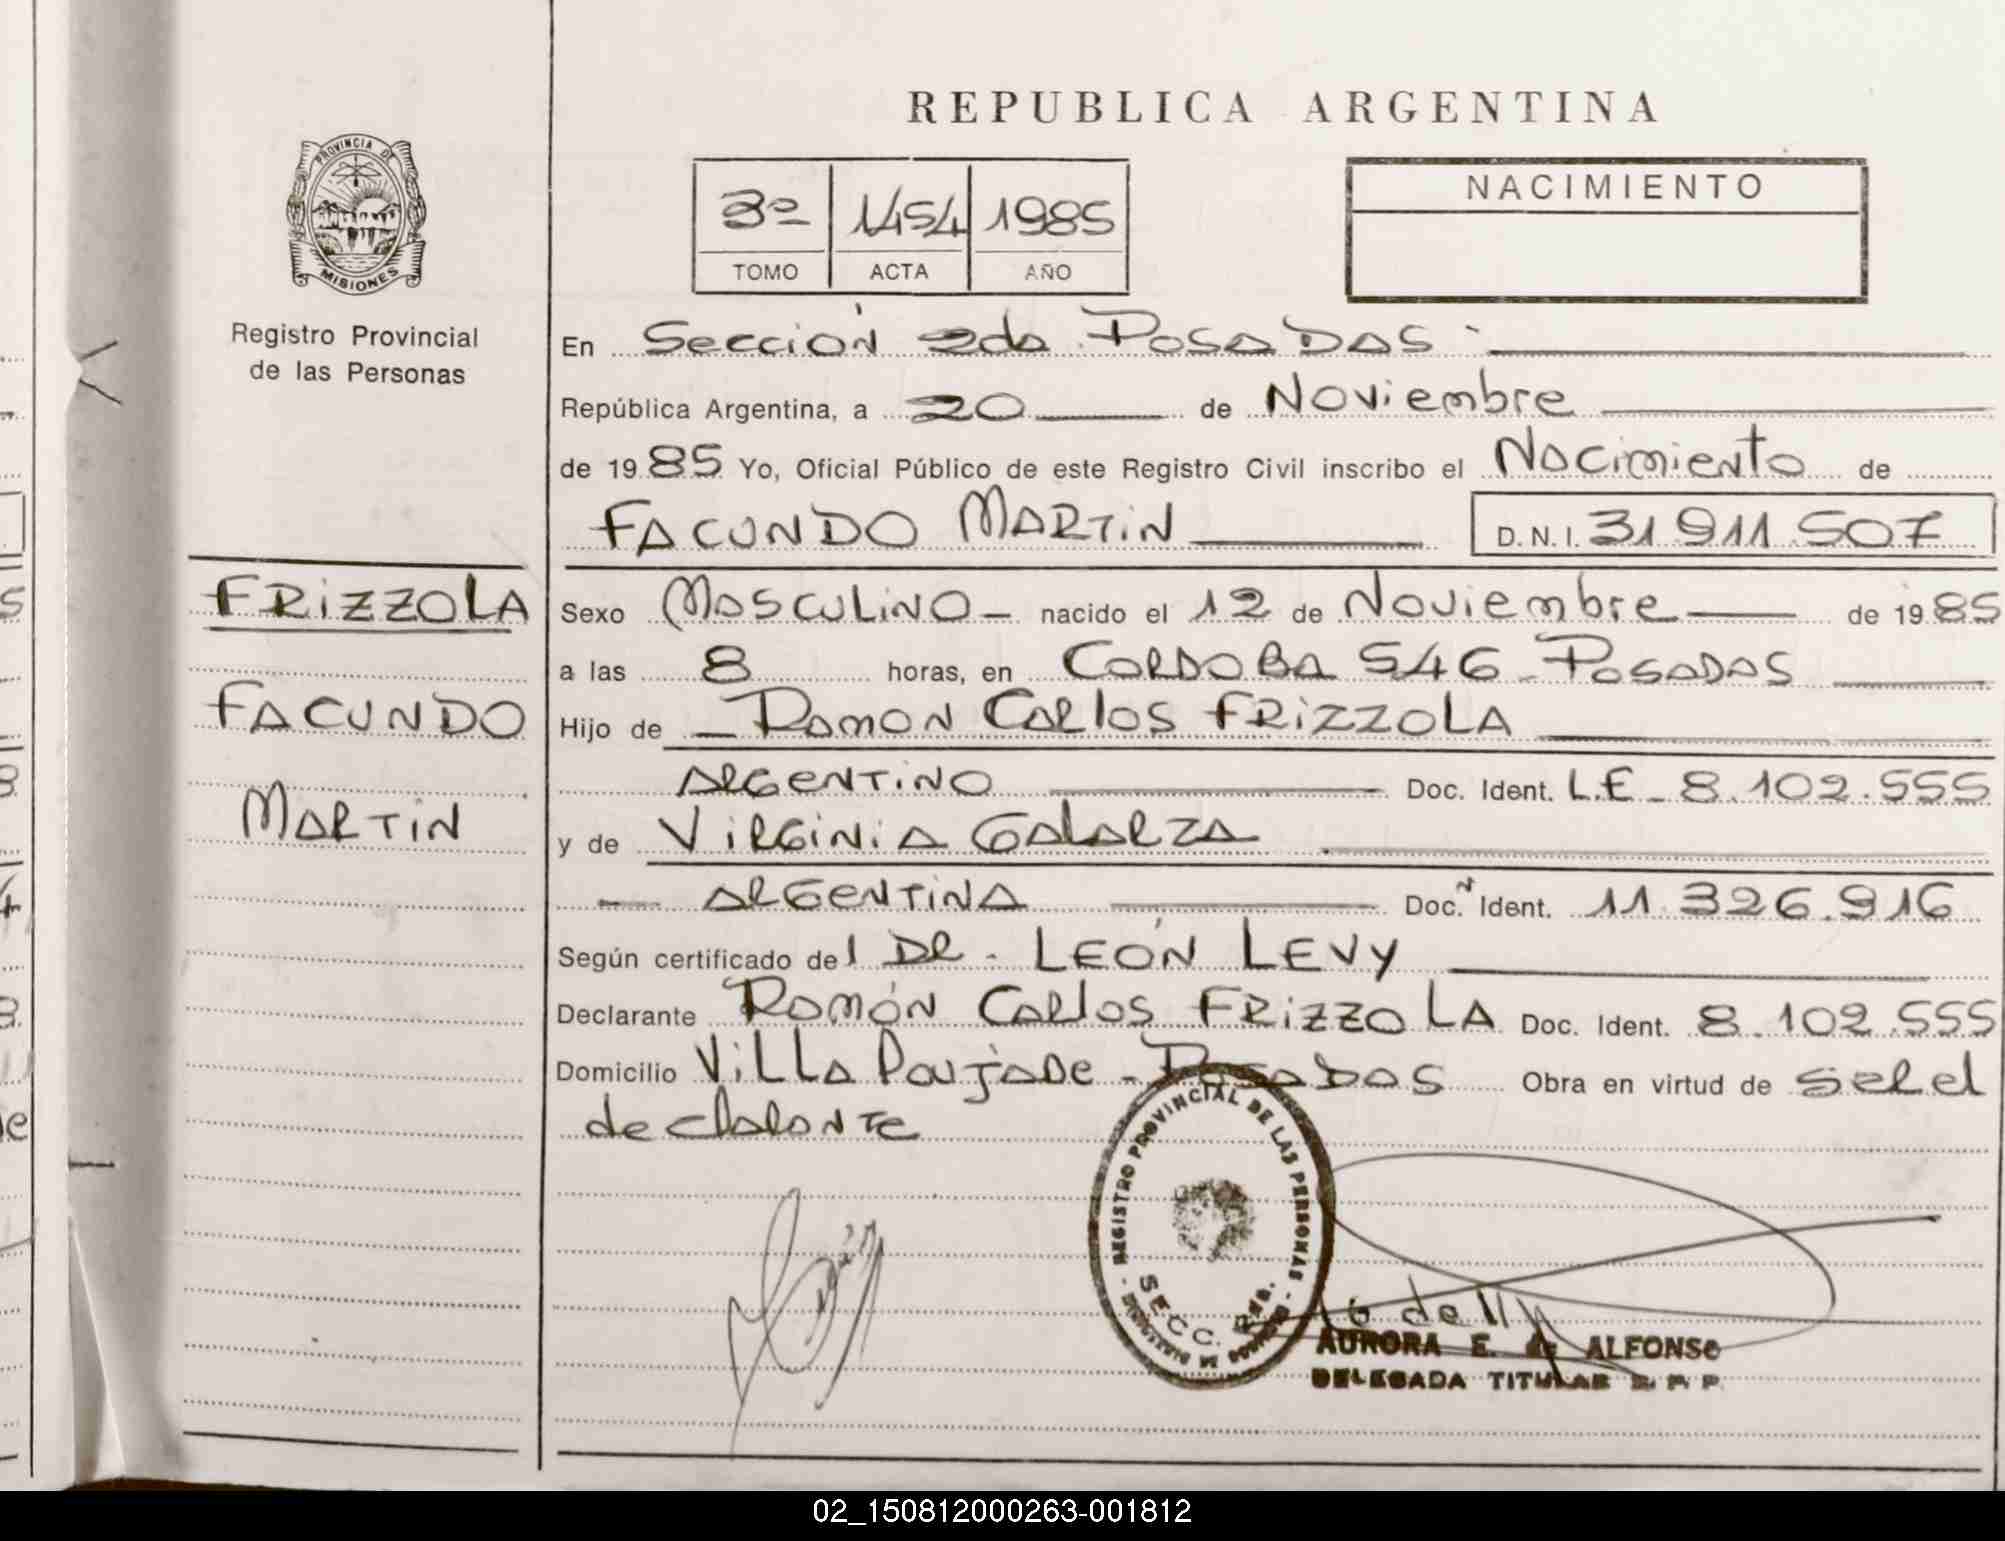 REPUBLICA ARGENTINA
PROVINCIA DE
MISIONES
Registro Provincial
de las Personas
3º 1454 1985
TOMO ACTA AÑO
NACIMIENTO
En Sección 2da Posadas
República Argentina, a 20 de Noviembre
de 1985 Yo, Oficial Público de este Registro Civil inscribo el Nacimiento de
FACUNDO MARTIN D.N.I. 31.911.507
FRIZZOLA
FACUNDO
MARTIN
Sexo Masculino nacido el 12 de Noviembre de 1985
a las 8 horas, en CORDOBA 546 - Posadas
Hijo de Ramon Carlos FRIZZOLA
ARGENTINO Doc. Ident. L.E - 8.102.555
y de VIRGINIA GALARZA
ARGENTINA Doc. Ident. 11.326.916
Según certificado del DR. LEÓN LEVY
Declarante Ramón Carlos FRIZZOLA Doc. Ident. 8.102.555
Domicilio Villa Poujade - Posadas Obra en virtud de ser el
declarante
REGISTRO PROVINCIAL DE LAS PERSONAS
SECC. 2da.
AURORA E. ALFONSO
DELEGADA TITULAR R. P. P.
02_150812000263-001812